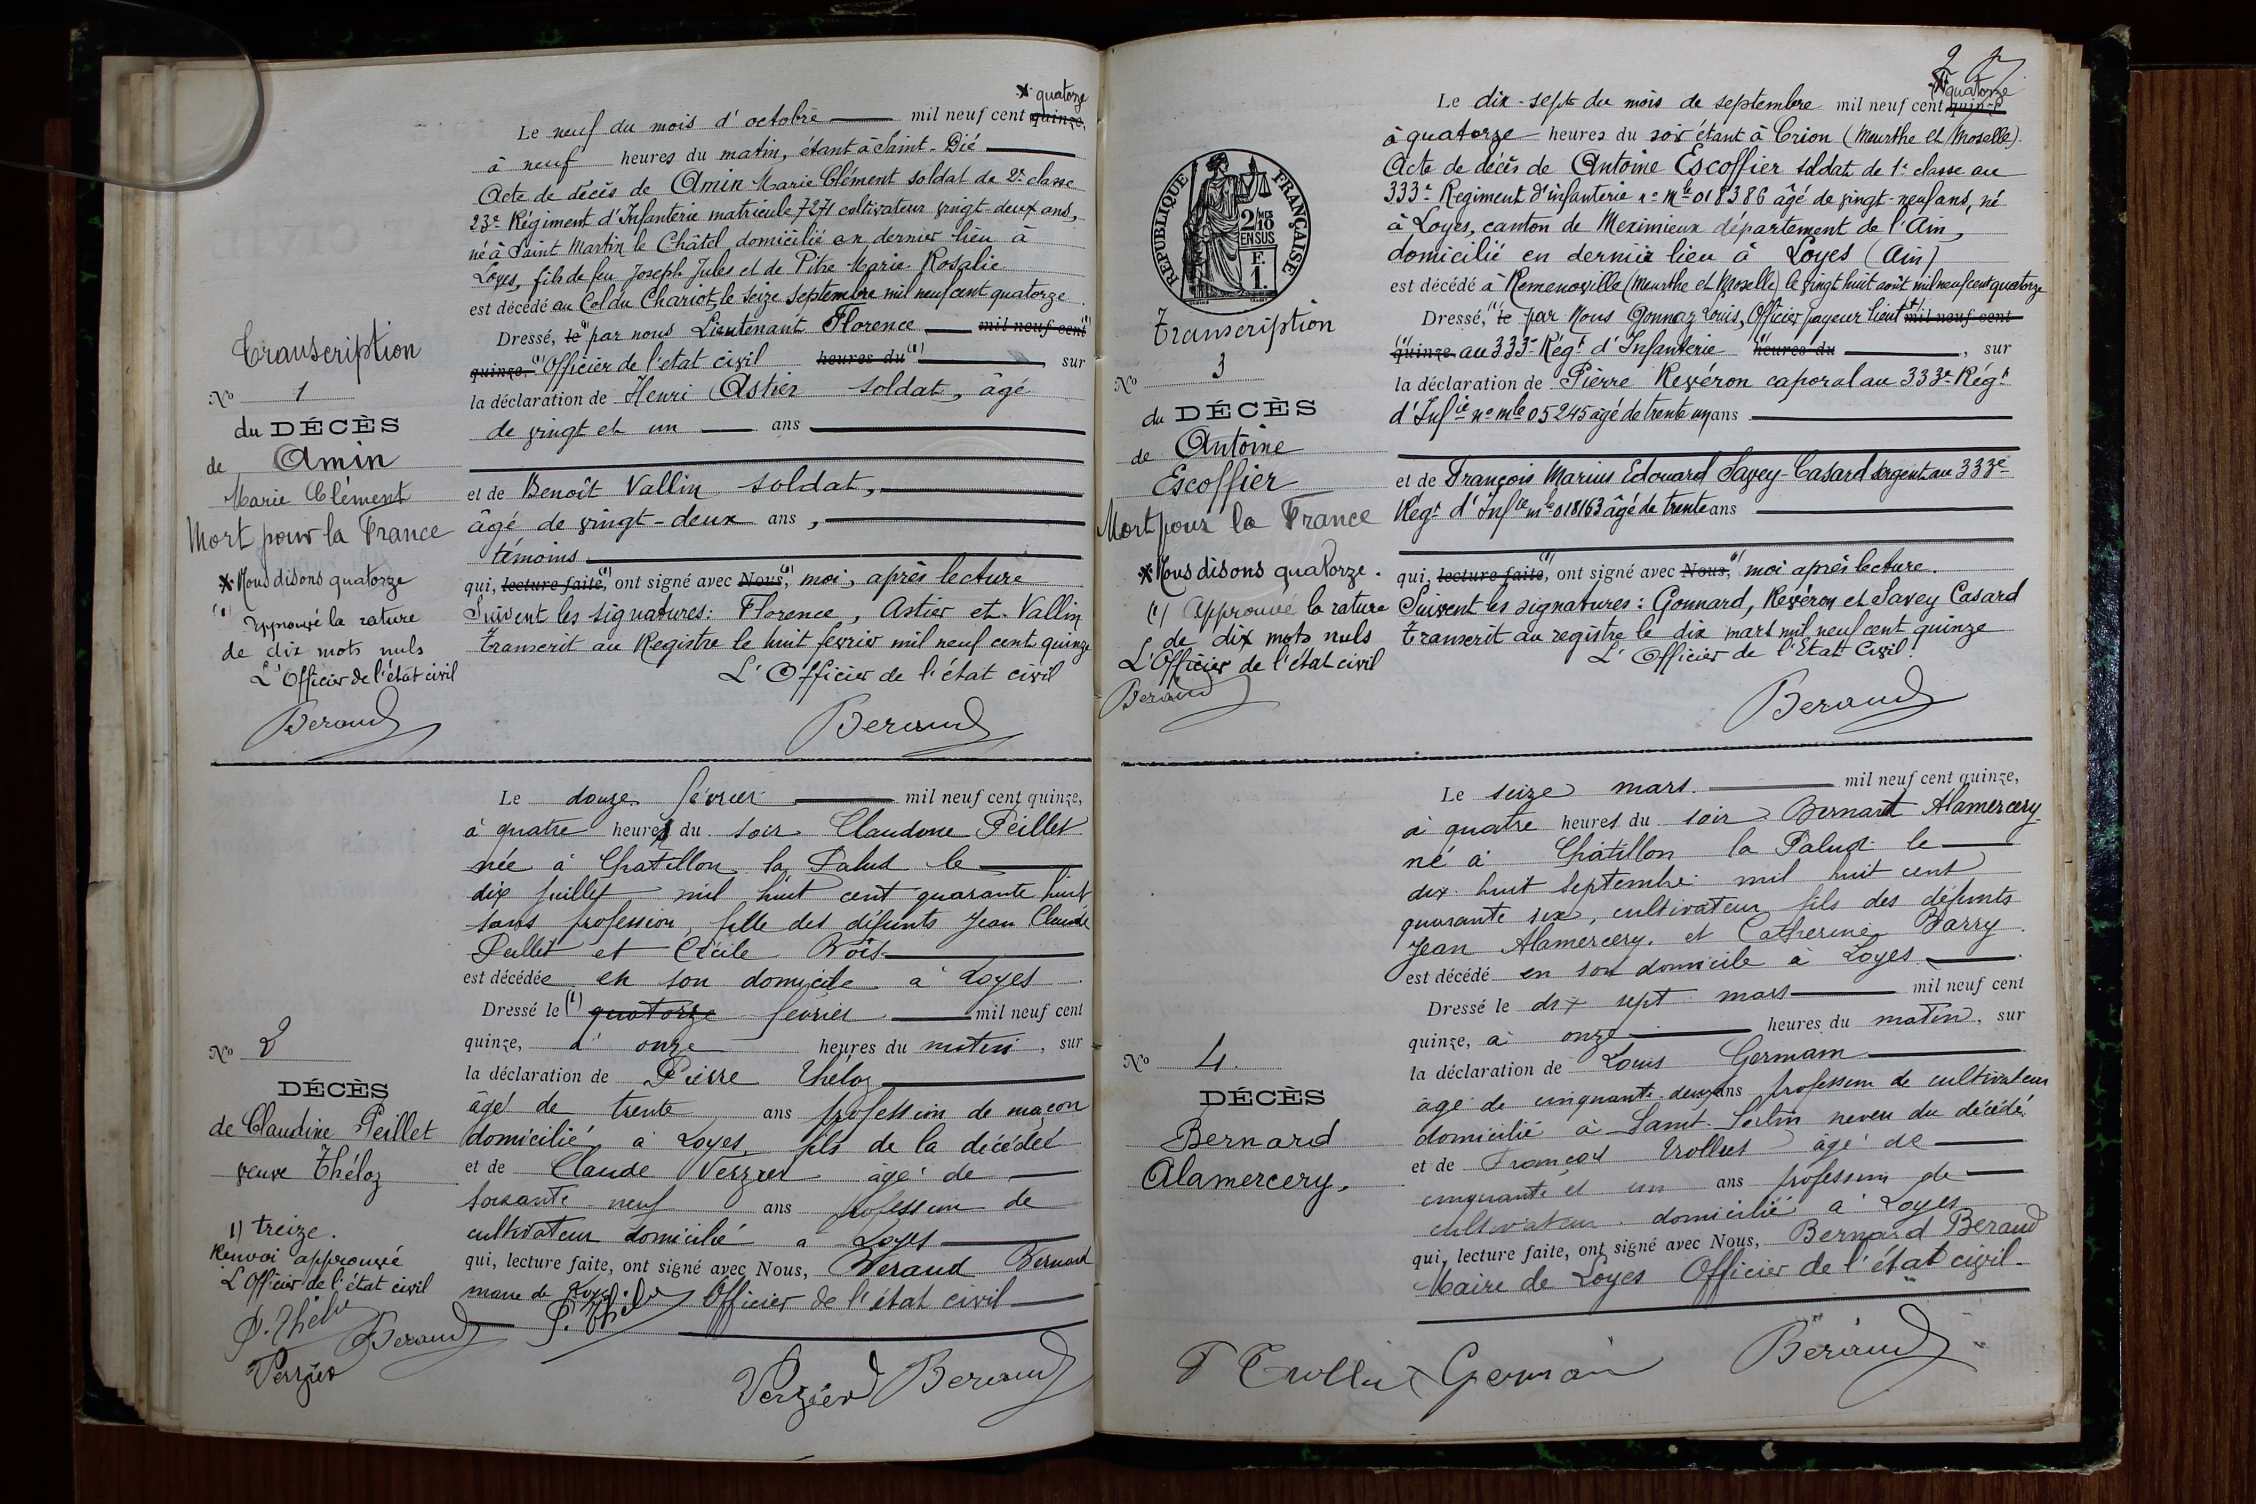 Transcription
No 1
du DÉCÈS
de Amin
Marie Clément
Mort pour la France
* Nous disons quatorze
(1) Approuvé la rature
de dix mots nuls
L'Officier de l'état civil
Beraud
* quatorze
Le neuf du mois d'octobre mil neuf cent quinze,
à neuf heures du matin, étant à Saint-Dié
Acte de décès de Amin Marie Clément soldat de 2e classe
23e Régiment d'Infanterie matricule 7271 cultivateur vingt-deux ans,
né à Saint Martin le Châtel, domicilié en dernier lieu à
Loyes, fils de feu Joseph Jules et de Pitre Marie Rosalie
est décédé au Col du Chariot, le seize Septembre mil neuf cent quatorze.
Dressé, le (1) par nous Lieutenant Florence mil neuf cent (1)
quinze, (1) Officier de l'etat civil heures du (1) sur
la déclaration de Henri Astier soldat, âgé
de vingt et un ans
et de Benoît Vallin soldat,
âgé de vingt-deux ans,
témoins
qui, lecture faite, (1) ont signé avec Nous, (1) moi, après lecture
Suivent les signatures: Florence, Astier et Vallin
Transcrit au Registre le huit fevrier mil neuf cent quinze
L'Officier de l'état civil
Beraud
No 2
DÉCÈS
de Claudine Peillet
veuve Théloz
1) treize.
Renvoi approuvé
L'Officier de l'état civil
P. Théloz
Beraud
Verzier
Le douze février mil neuf cent quinze,
à quatre heures du soir Claudine Peillet
née à Chatillon la Palud le
dix juillet mil huit cent quarante huit
sans profession, fille des défunts Jean Claude
Peillet et Cécile
est décédée en son domicile à Loyes
Dressé le (1) quatorze février mil neuf cent
quinze, à onze heures du matin, sur
la déclaration de Pierre Théloz
âgé de trente ans profession de maçon
domicilié à Loyes, fils de la décédée
et de Claude Verzier âgé de
soixante neuf ans profession de
cultivateur domicilié à Loyes
qui, lecture faite, ont signé avec Nous, Beraud Bernard
maire de Loyes. Officier de l'état civil
P. Théloz
Verzier Beraud
RÉPUBLIQUE FRANÇAISE
2/10 MES
EN SUS
F.
1.
Transcription
No 3
du DÉCÈS
de Antoine
Escoffier
Mort pour la France
* Nous disons quatorze.
(1) Approuvé la rature
de dix mots nuls
L'Officier de l'état civil
Beraud
* quatorze
Le dix-sept du mois de septembre mil neuf cent quinze
à quatorze heures du soir étant à Crion (Meurthe et Moselle).
Acte de décès de Antoine Escoffier soldat de 1e classe au
333e Regiment d'infanterie no mle 018386 âgé de vingt-neuf ans, né
à Loyes, canton de Meximieux département de l'Ain,
domicilié en dernier lieu à Loyes (Ain)
est décédé à Remenoville (Meurthe et Moselle) le vingt huit août mil neuf cent quatorze
Dressé, (1) le par Nous Gonnaz Louis, Officier payeur lieut (1) mil neuf cent
(1) quinze au 333e Régt d'Infanterie (1) heures du, sur
la déclaration de Pierre Revéron caporal au 333e Régt
d'Infie no mle 05245 âgé de trente un ans
et de François Marius Edouard Savey-Casard sergent au 333e
Régt d'Infie mle 018163 âgé de trente ans
qui, lecture faite, (1) ont signé avec Nous, (1) moi après lecture.
Suivent les signatures: Gonnard, Revéron et Savey Casard
Transcrit au registre le dix mars mil neuf cent quinze
L'Officier de l'Etat Civil.
Beraud
No 4.
DÉCÈS
Bernard
Alamercery.
Le seize mars. mil neuf cent quinze,
à quatre heures du soir Bernard Alamercery
né à Châtillon la Palud le
dix huit septembre mil huit cent
quarante six, cultivateur fils des défunts
Jean Alamercery. et Catherine Barry.
est décédé en son domicile à Loyes
Dressé le dix sept mars mil neuf cent
quinze, à onze heures du matin, sur
la déclaration de Louis Germain
âgé de cinquante-deux ans profession de cultivateur
domicilié à Saint neveu du décédé.
et de François Trolliet âgé de
cinquante et un ans profession de
cultivateur. domicilié à Loyes
qui, lecture faite, ont signé avec Nous, Bernard Beraud
Maire de Loyes Officier de l'état civil.
F Trolliet Germain Beraud